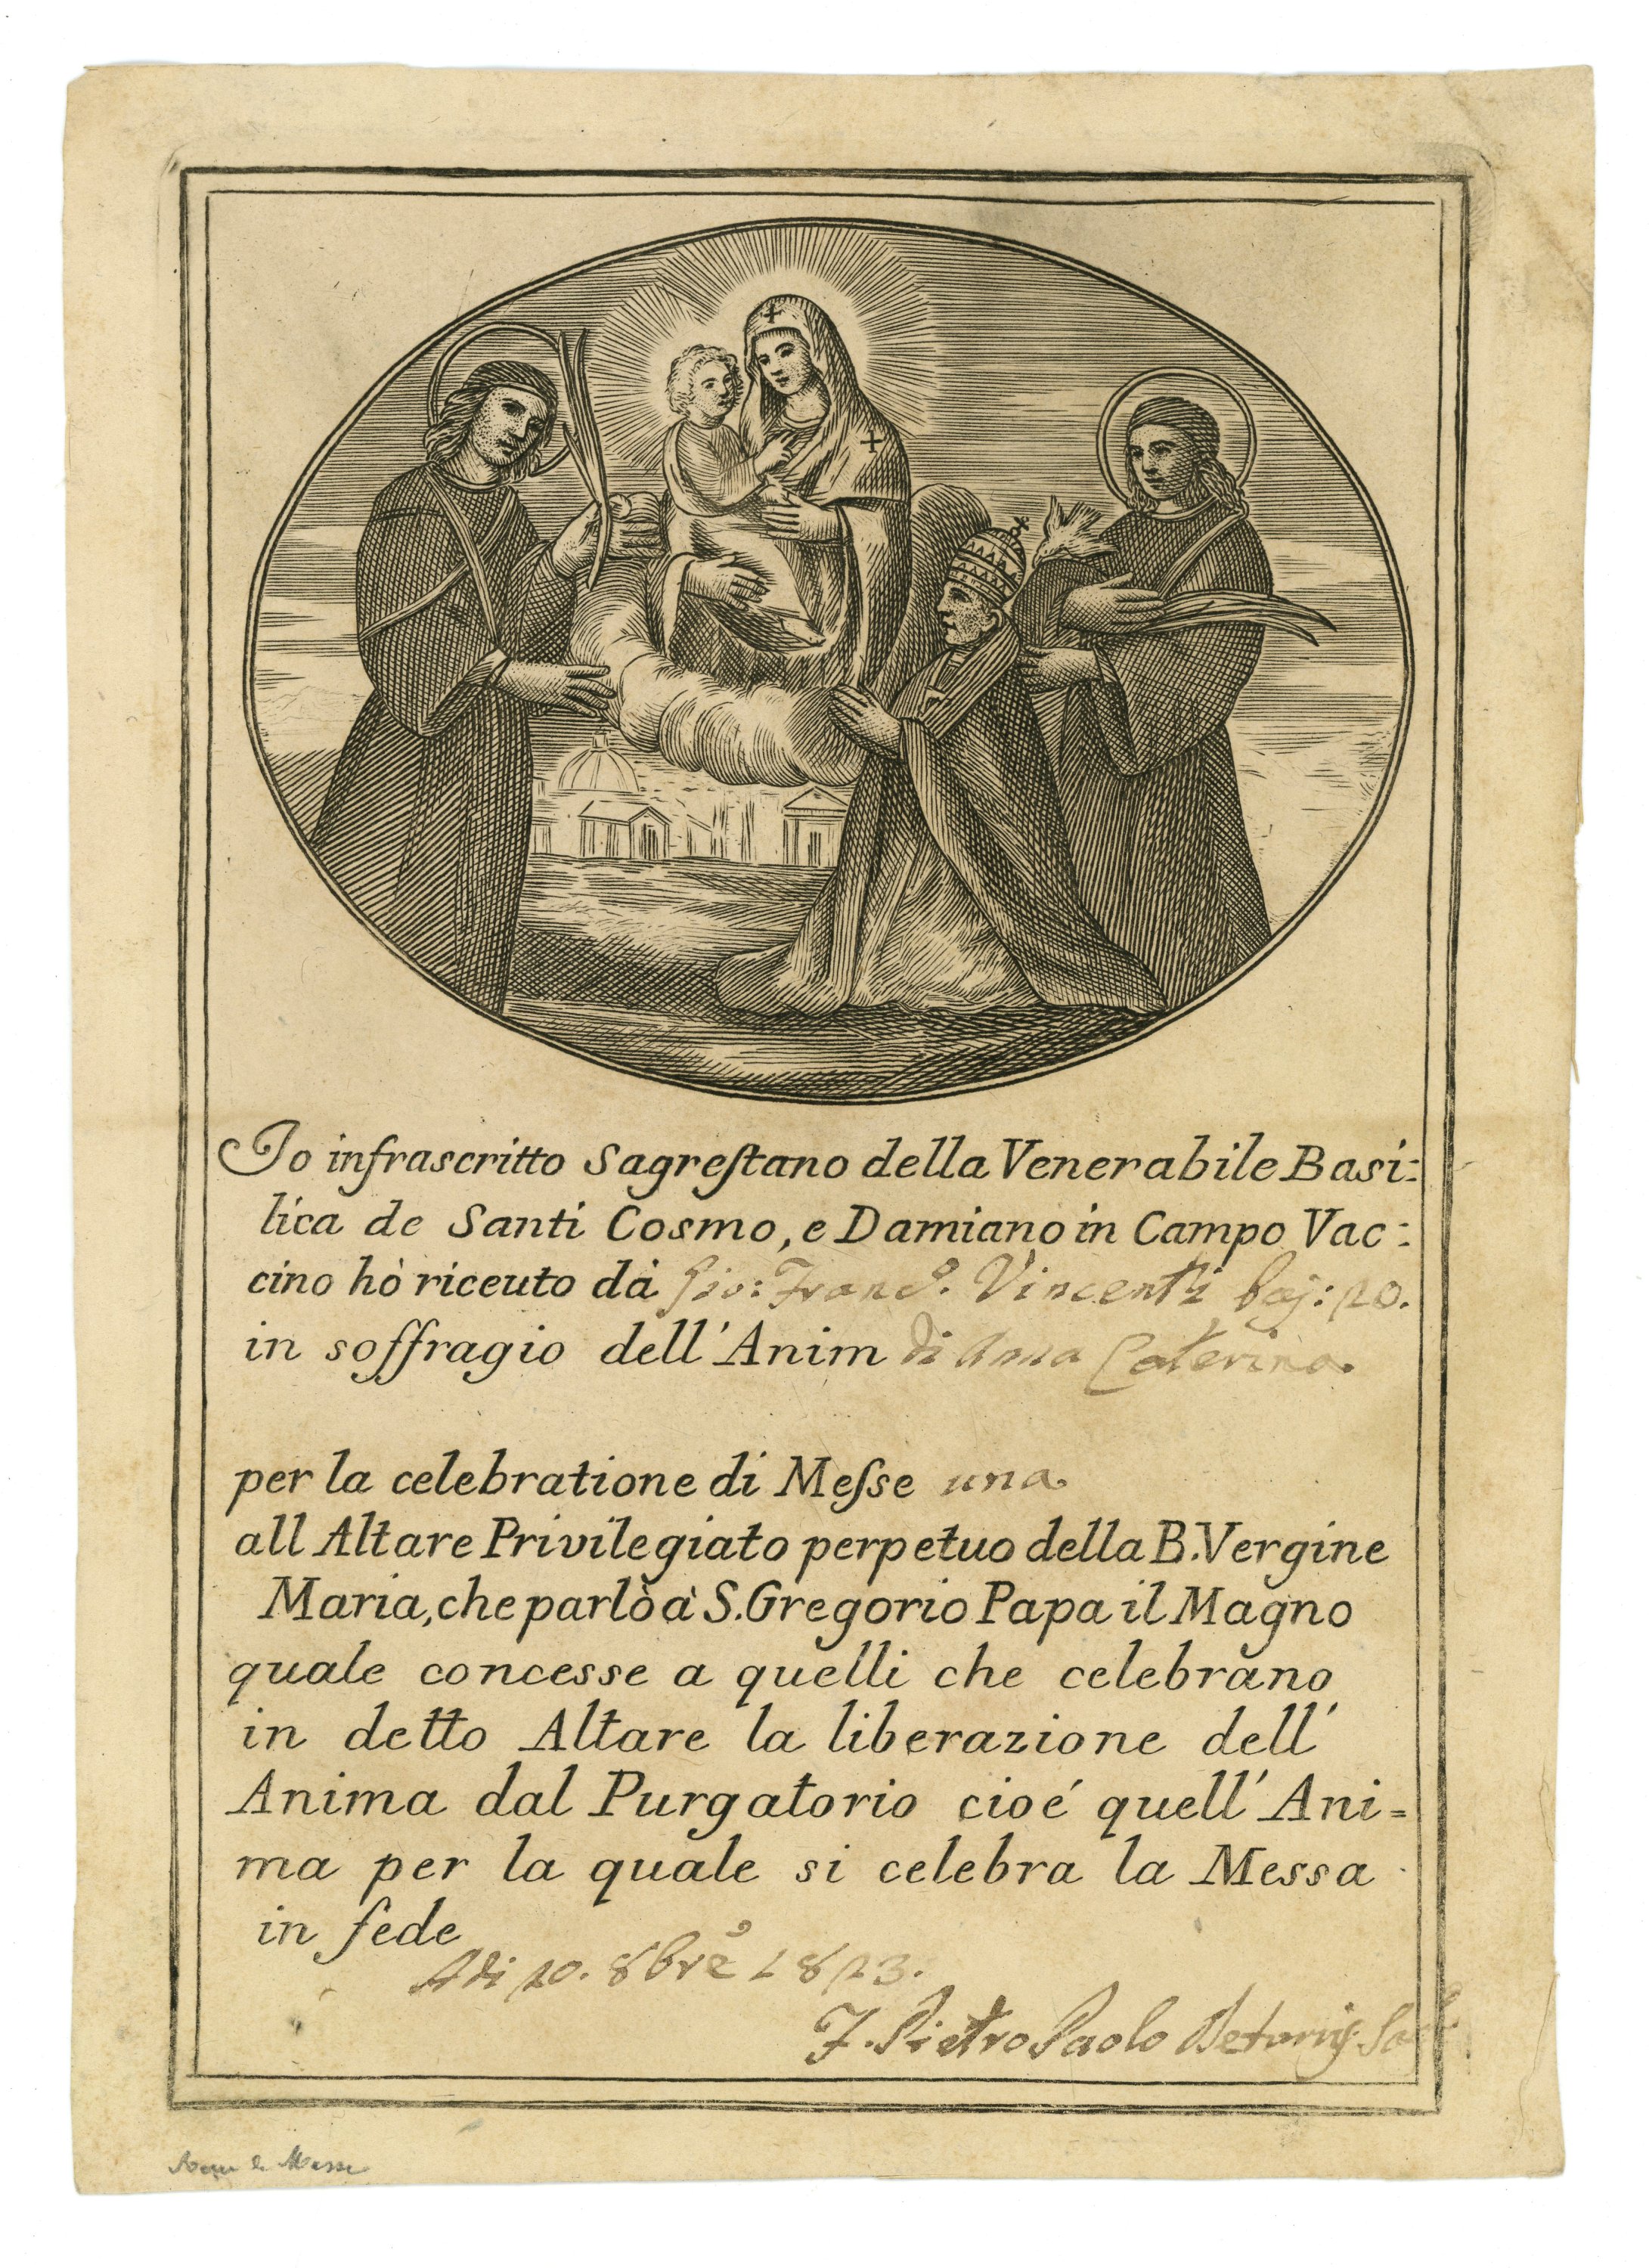 Io infrascritto Sagreſtano della Venerabile Basi:
lica de Santi Cosmo, e Damiano in Campo Vac:
cino hò riceuto dà Gio: Franc.º Vincenti baj: 20.
in soffragio dell'Anim di Anna Caterina.
per la celebratione di Meſse una
all Altare Privilegiato perpetuo della B. Vergine
Maria, che parlò à S. Gregorio Papa il Magno
quale concesse a quelli che celebrano
in detto Altare la liberazione dell'
Anima dal Purgatorio cioé quell' Ani=
ma per la quale si celebra la Messa
in fede
Adi 20. 8bre 1823.
F. Pietro Paolo